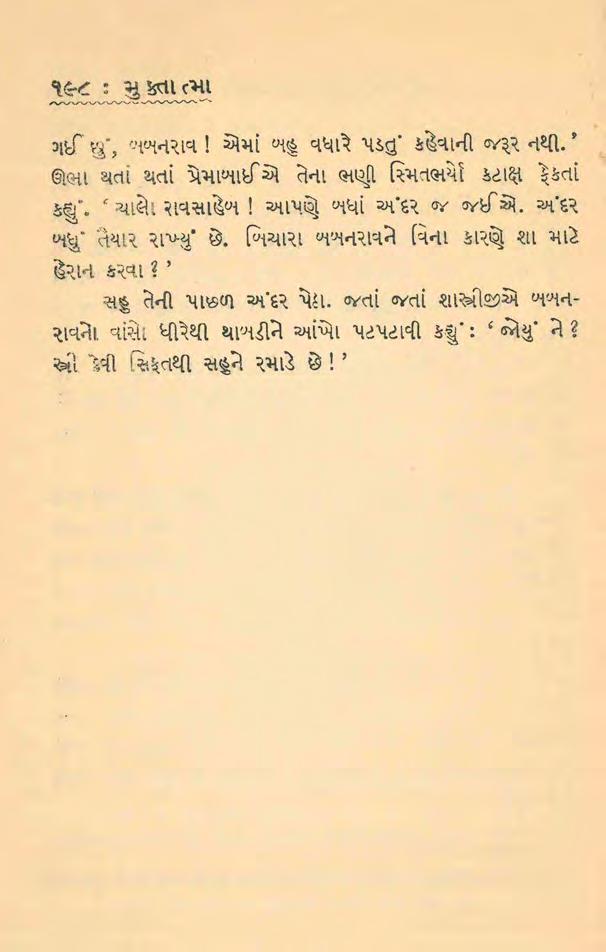 ૧૯૮ : મુક્તાત્મા
ગઈ છું, બબનરાવ ! એમાં બહુ વધારે પડતું કહેવાની જરૂર નથી.’
ઊભા થતાં થતાં પ્રેમાબાઈએ તેના ભણી સ્મિતભર્યો કટાક્ષ ફેંકતાં
કહ્યું. ‘ ચાલો રાવસાહેબ ! આપણે બધાં અંદર જ જઈએ. અંદર
બધું તૈયાર રાખ્યું છે. બિચારા બબનરાવને વિના કારણે શા માટે
હેરાન કરવા ? ’
સહુ તેની પાછળ અંદર પેઠા. જતાં જતાં શાસ્ત્રીજીએ બબન-
રાવનો વાંસો ધીરેથી થાબડીને આંખો પટપટાવી કહ્યું : ‘ જોયું ને ?
સ્ત્રી કેવી સિફતથી સહુને રમાડે છે ! ’